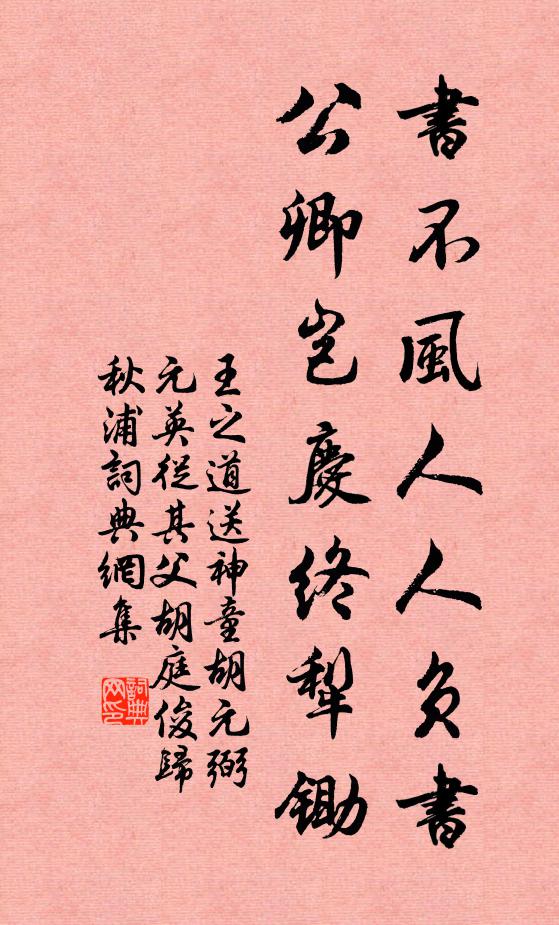 書不風人人負書
公卿豈慶終犁鋤
王之道送神童胡元弼
元英從其父胡庭俊歸
秋浦詞典網集
詞典网印